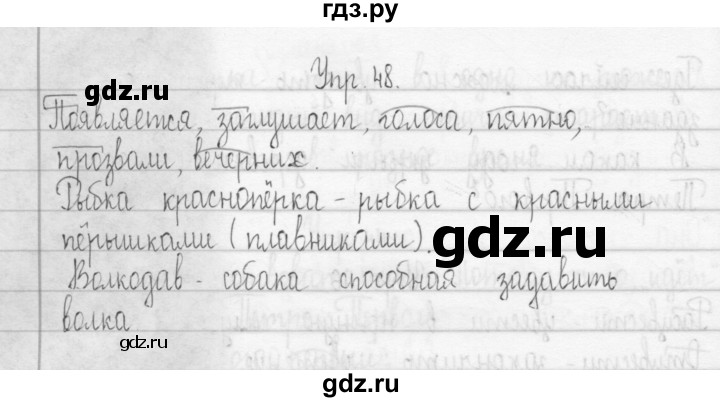 гдз.ру
Упр. 48.
gdz.ru
Появляется, заглушает, голоса, пятно,
прозвали, вечерних.
Рыбка краснопёрка - рыбка с красными
пёрышками (плавниками).
gdz.ru
Волкодав - собака способная задавить
волка
gdz.ru
gdz.ru